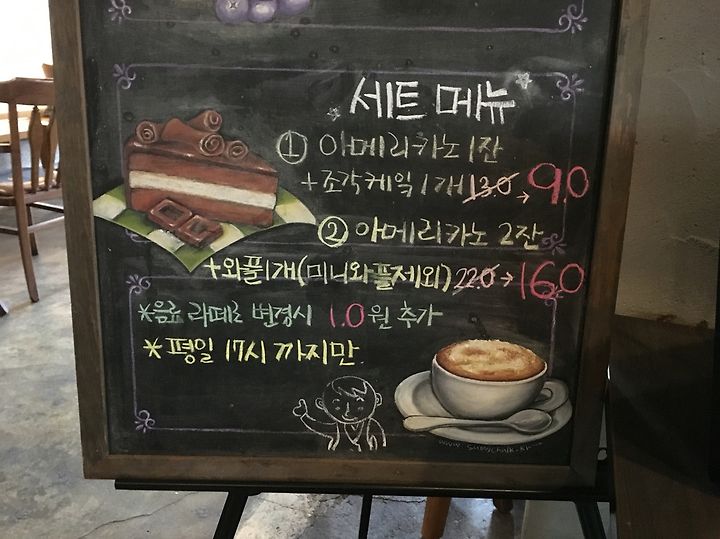 세트 메뉴
① 아메리카노 1잔
+ 조각케익 1개 13.0 → 9.0
② 아메리카노 2잔
+와플1개(미니와플제외) 22.0 → 16.0
*음료 라떼로 변경시 1.0원 추가
*평일 17시 까지만